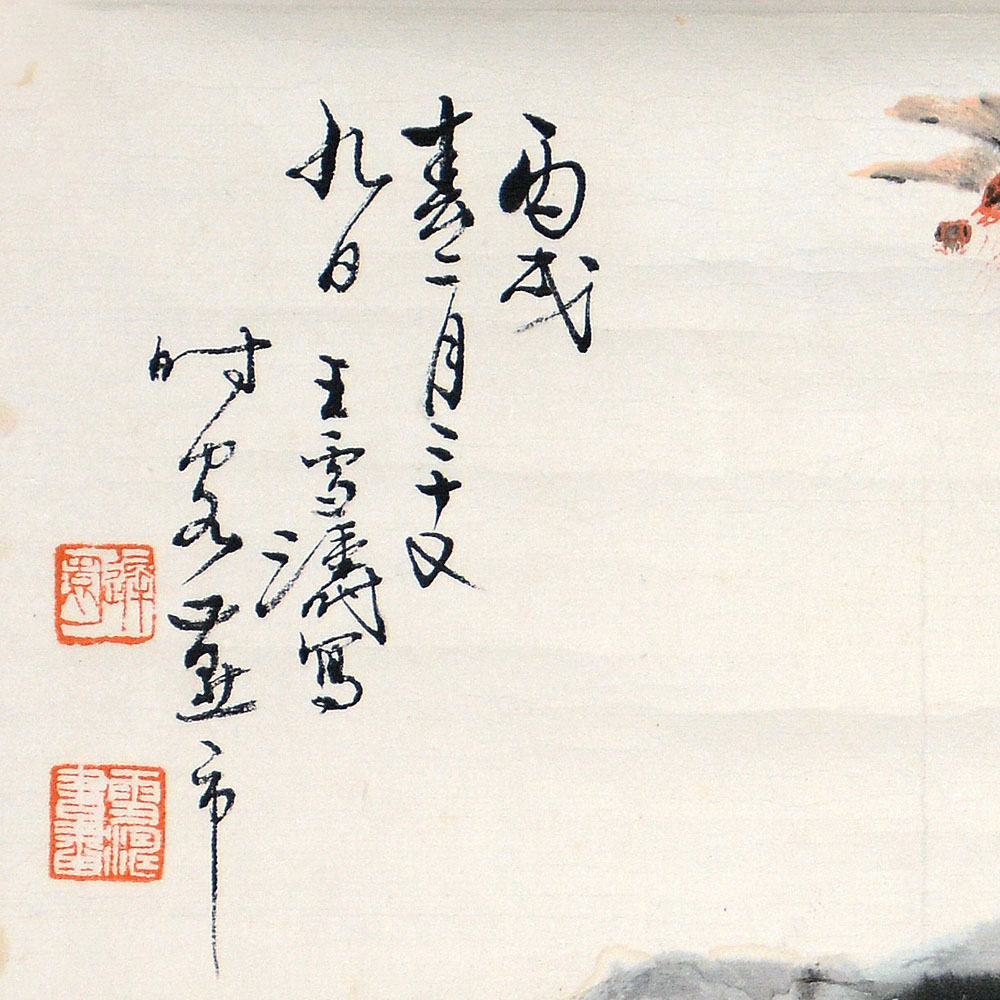 丙戌
春二月二十又
九日 王雪濤寫
时客燕市
遲園
雪濤書畫